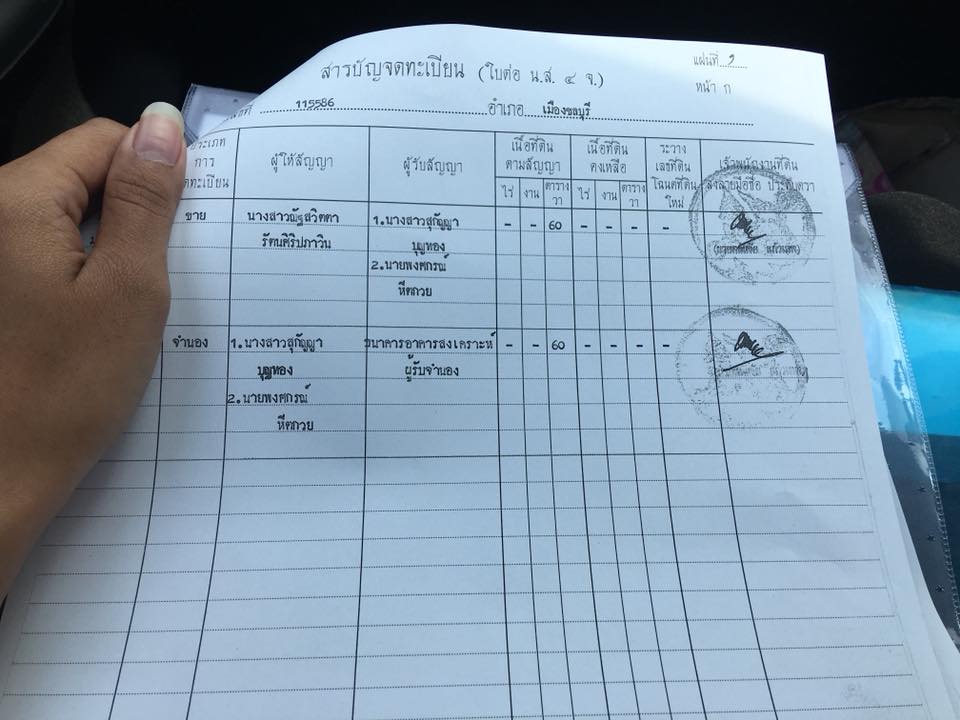 สารบัญจดทะเบียน (ใบต่อ น.ส. ๔ จ.)
แผ่นที่
หน้า ก
115586 อำเภอ เมืองชลบุรี
ประเภท
การ
ผู้ให้สัญญา
ผู้รับสัญญา
เนื้อที่ดิน
ตามสัญญา
เนื้อที่ดิน
คงเหลือ
ระวาง
เลขที่ดิน
โฉนดที่ดิน
ใหม่
เจ้าพนักงานที่ดิน
ลงลายมือชื่อ ประทับตรา
ไร่ งาน ตาราง
วา
ไร่ งาน ตาราง
วา
ขาย นางสาวณัฐสวิตตา 1.นางสาวสุกัญญา - - 60 - - - -
รัตนศิริปภาวิน บุญทอง
2.นายพงศกรณ์
หีตกวย
จำนอง 1.นางสาวสุกัญญา ธนาคารอาคารสงเคราะห์ - - 60 - - - -
บุญทอง ผู้รับจำนอง
2.นายพงศกรณ์
หีตกวย